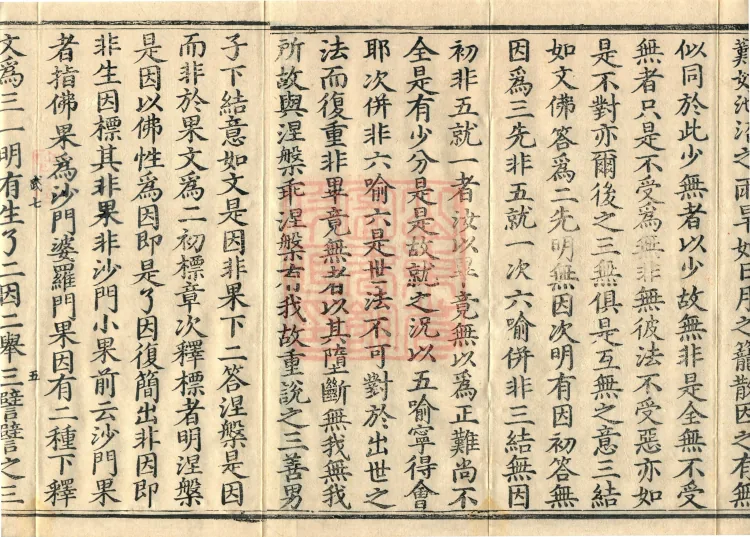 難如油注之雨旱如日月之籠散因之有無
似同於此少無者以少故無非是全無不受
無者只是不受為無非無彼法不受惡亦如
是不對亦爾後之三無俱是互無之意三結
如文佛答為二先明無因次明有因初答無
因為三先非五就一次六喻併非三結無因
初非五就一者汝以畢竟無以為正難尚不
全是有少分是是故就之況以五喻寧得會
耶次併非六喻六是世法不可對於出世之
法而復重非畢竟無者以其墮斷無我無我
所故與涅槃乖涅槃有我故重說之三善男
子下結意如文是因非果下二答涅槃是因
而非於果文為二初標章次釋標者明涅槃
是因以佛性為因即是了因復簡出非因即
非生因標其非果非沙門小果前云沙門果
者指佛果為沙門婆羅門果因有二種下釋
弍七 五
文為三一明有生了二因二舉三譬譬之三